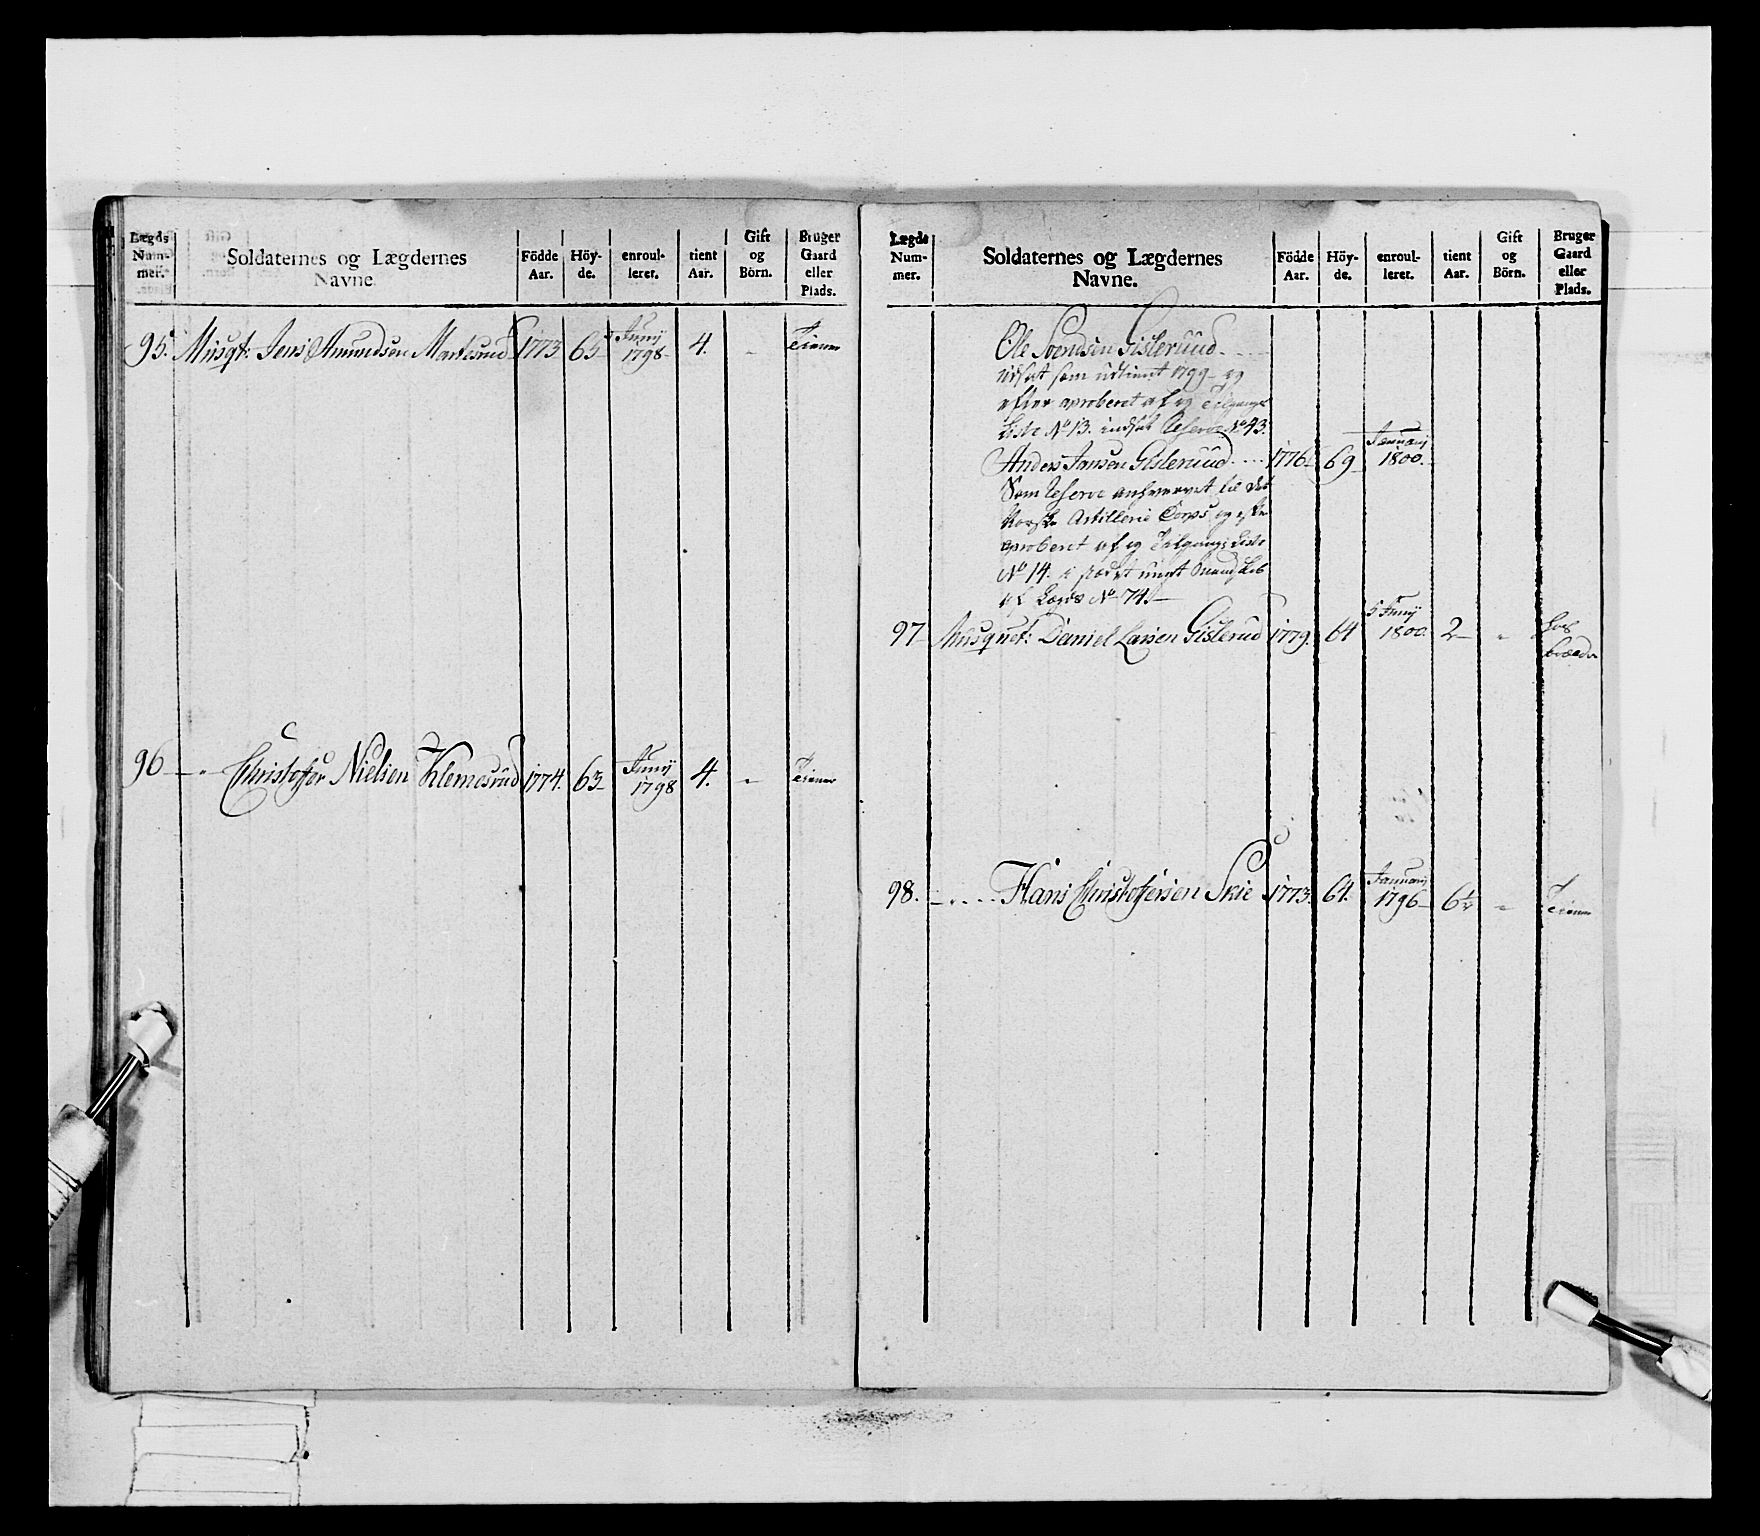 Lægds Num- mer.
Soldaternes og Lægdernes Navne.
Födde Aar.
Höy- de.
enroul- leret.
tient Aar.
Gift og Börn.
Bruger Gaard eller Plads.
95. Musqt: Jens Amundsen Martesrud 1773 65 Junij 1798 4. " Tiener
96 - " Christoffer Nielsen Klemesrud 1774. 63 Junij 1798 4. " Tiener
Lægds Num- mer.
Soldaternes og Lægdernes Navne.
Födde Aar.
Höy- de.
enroul- leret.
tient Aar.
Gift og Börn.
Bruger Gaard eller Plads.
Ole Svendsen Gislerud
udsat som udtient 1799 - og
efter aproberet af og Tilgangs
Liste No 13. indsat Reserve No 43.
Anders Jansen Gislerud 1776 69 Januarij 1800.
Som Reserve anhvervet til det
Norske Artillerie Corps og efter
aproberet af og Tilgangs Liste
No 14. i stedet ungt Mandskab
af Lægds No 74.
97 Musquet: Daniel Larsen Gislerud 1779. 64 5 Junij 1800. 2 "
98. Hans Christoffersen Skie 1773. 64. Januarij 1796 6½ " Tiener